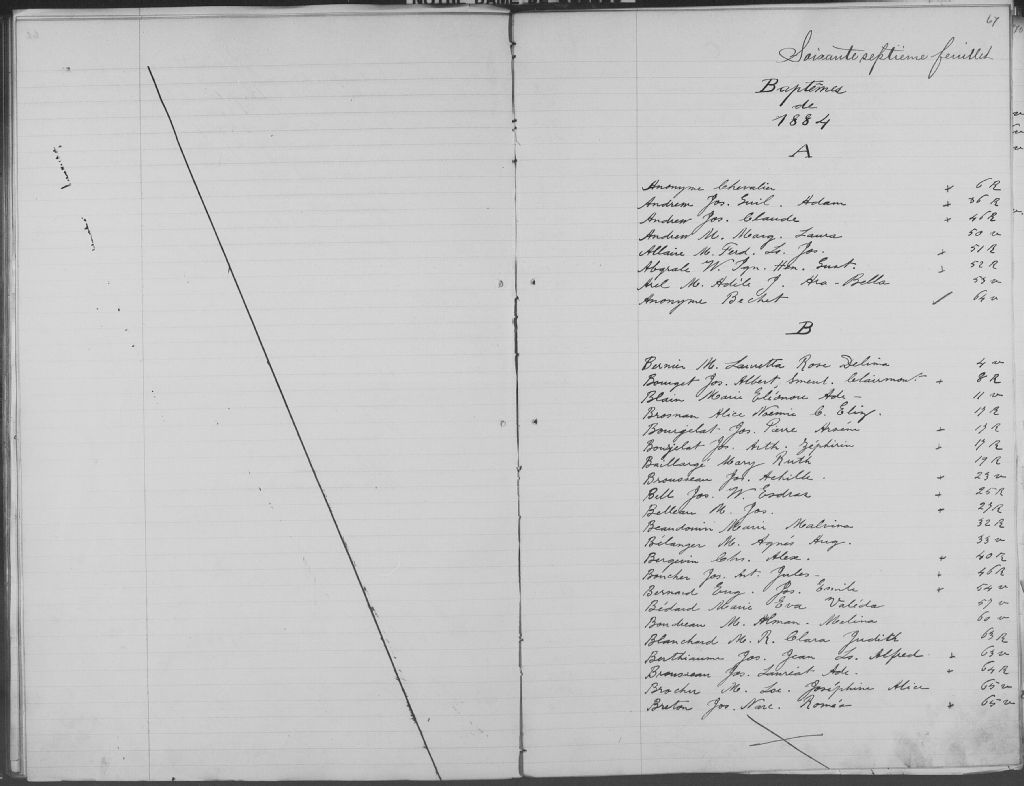 67
Soixante septieme feuillet
Baptêmes
de
1884
A
Anonyme Chevalier + 6 R
Andrew Jos. Guil. Adam + 36 R
Andrew Jos. Claude + 46 R
Andrew M. Marg. Laura 50 v
Allaire M. Ferd. Ls. Jos. + 51 R
Abgrale W. Ign. Hen. Gust. + 52 R
M. Adèle J. Bella 53 v
Anonyme Bechet / 64 v
B
Bernier M. Lauretta Rose Delina 4 v
Bourget Jos. Albert Clairmont + 8 R
Blain Marie Eléonore Ade - 11 v
Brosnan Alice Noémie C. Eliz. 17 R
Bourgelat Jos. Pierre Arsène + 17 R
Jos. Arth. Zéphirin + 17 R
Baillargé Mary Ruth 19 R
Brousseau Jos. Achille. + 23 v
Bell Jos. W. Esdras + 25 R
Belleau M. Jos. + 27 R
Beaudouin Marie Malvina 32 R
Bélanger M. Agnés Aug. 33 v
Bergevin Chs. Alex. + 40 R
Boucher Jos. Art. Jules - + 46 R
Bernard Eug. Jos. Emile + 54 v
Bédard Marie Eva Valéda 57 v
Boudreau M. Alman. Melina 60 v
Blanchard M. R. Clara Judith 63 R
Berthiaume Jos. Jean Ls. Alfred + 63 v
Brousseau Jos. Lauréat Ade. + 64 R
Brochu M. Loe. Joséphine Alice 65 v
Breton Jos. Narc. Roméo + 65 v